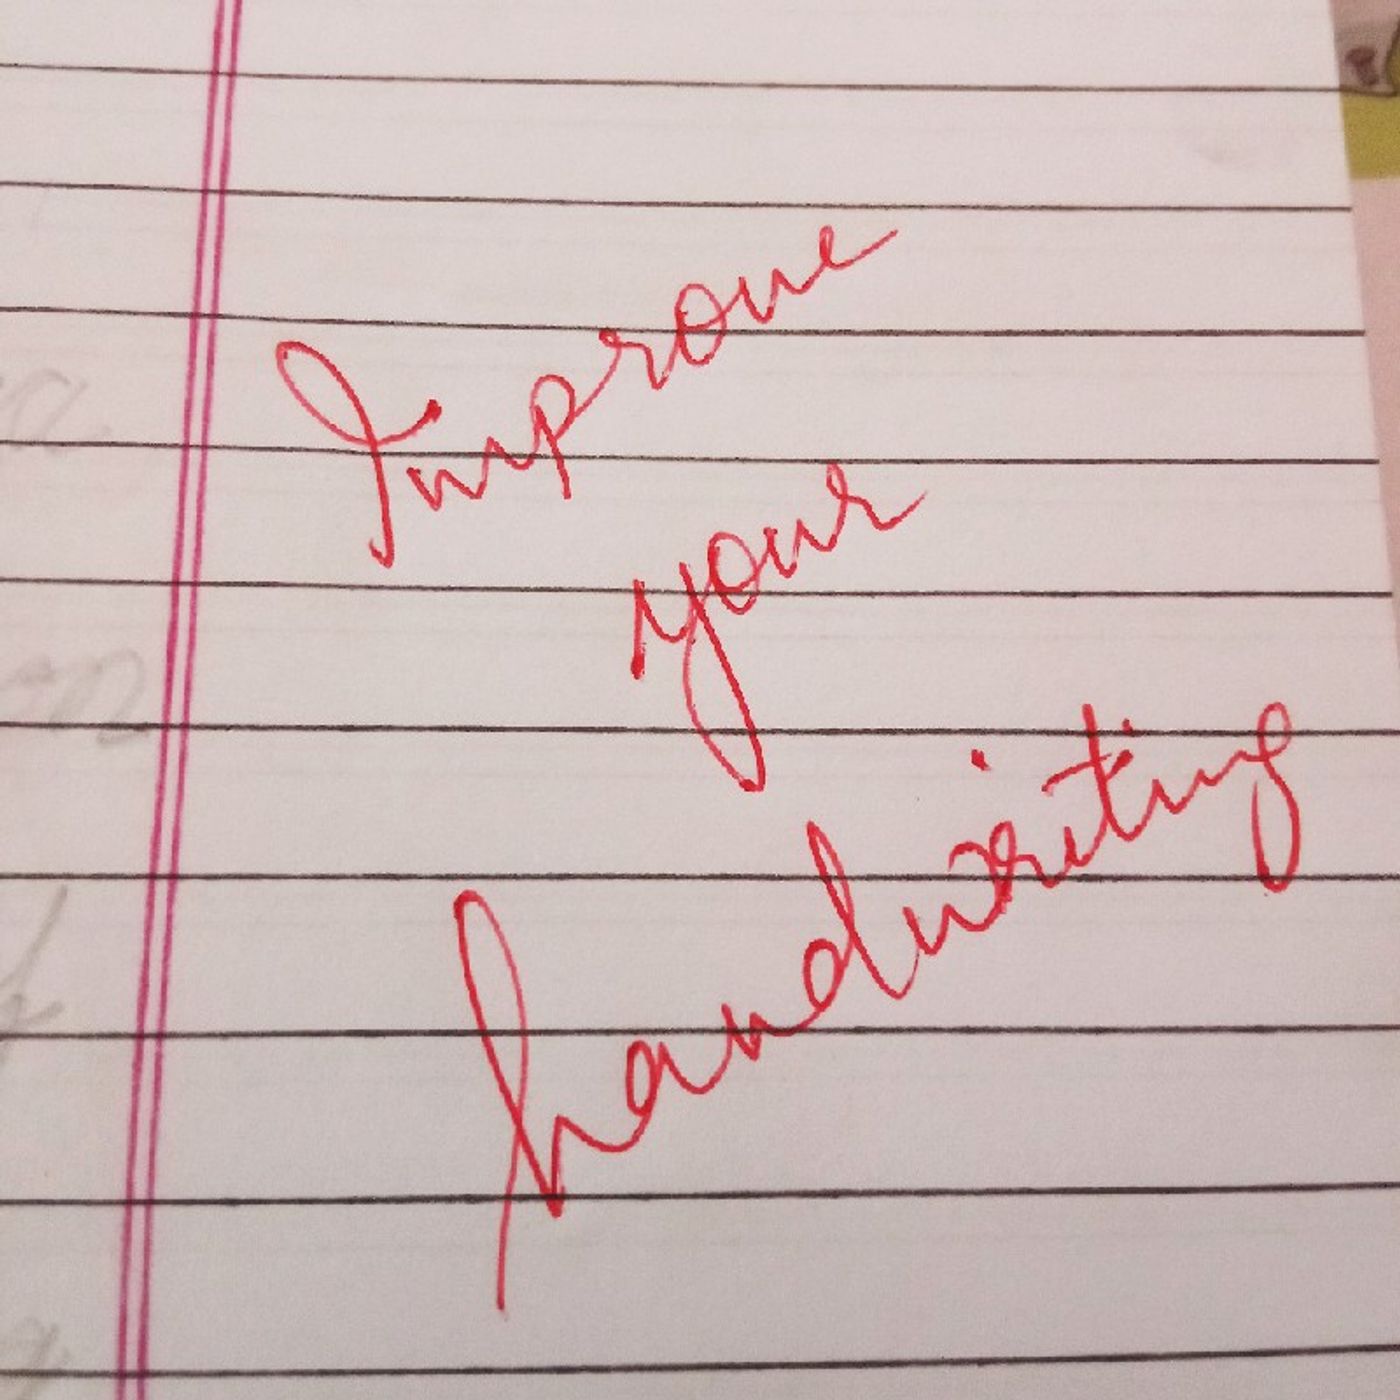 Improve
your
handwriting